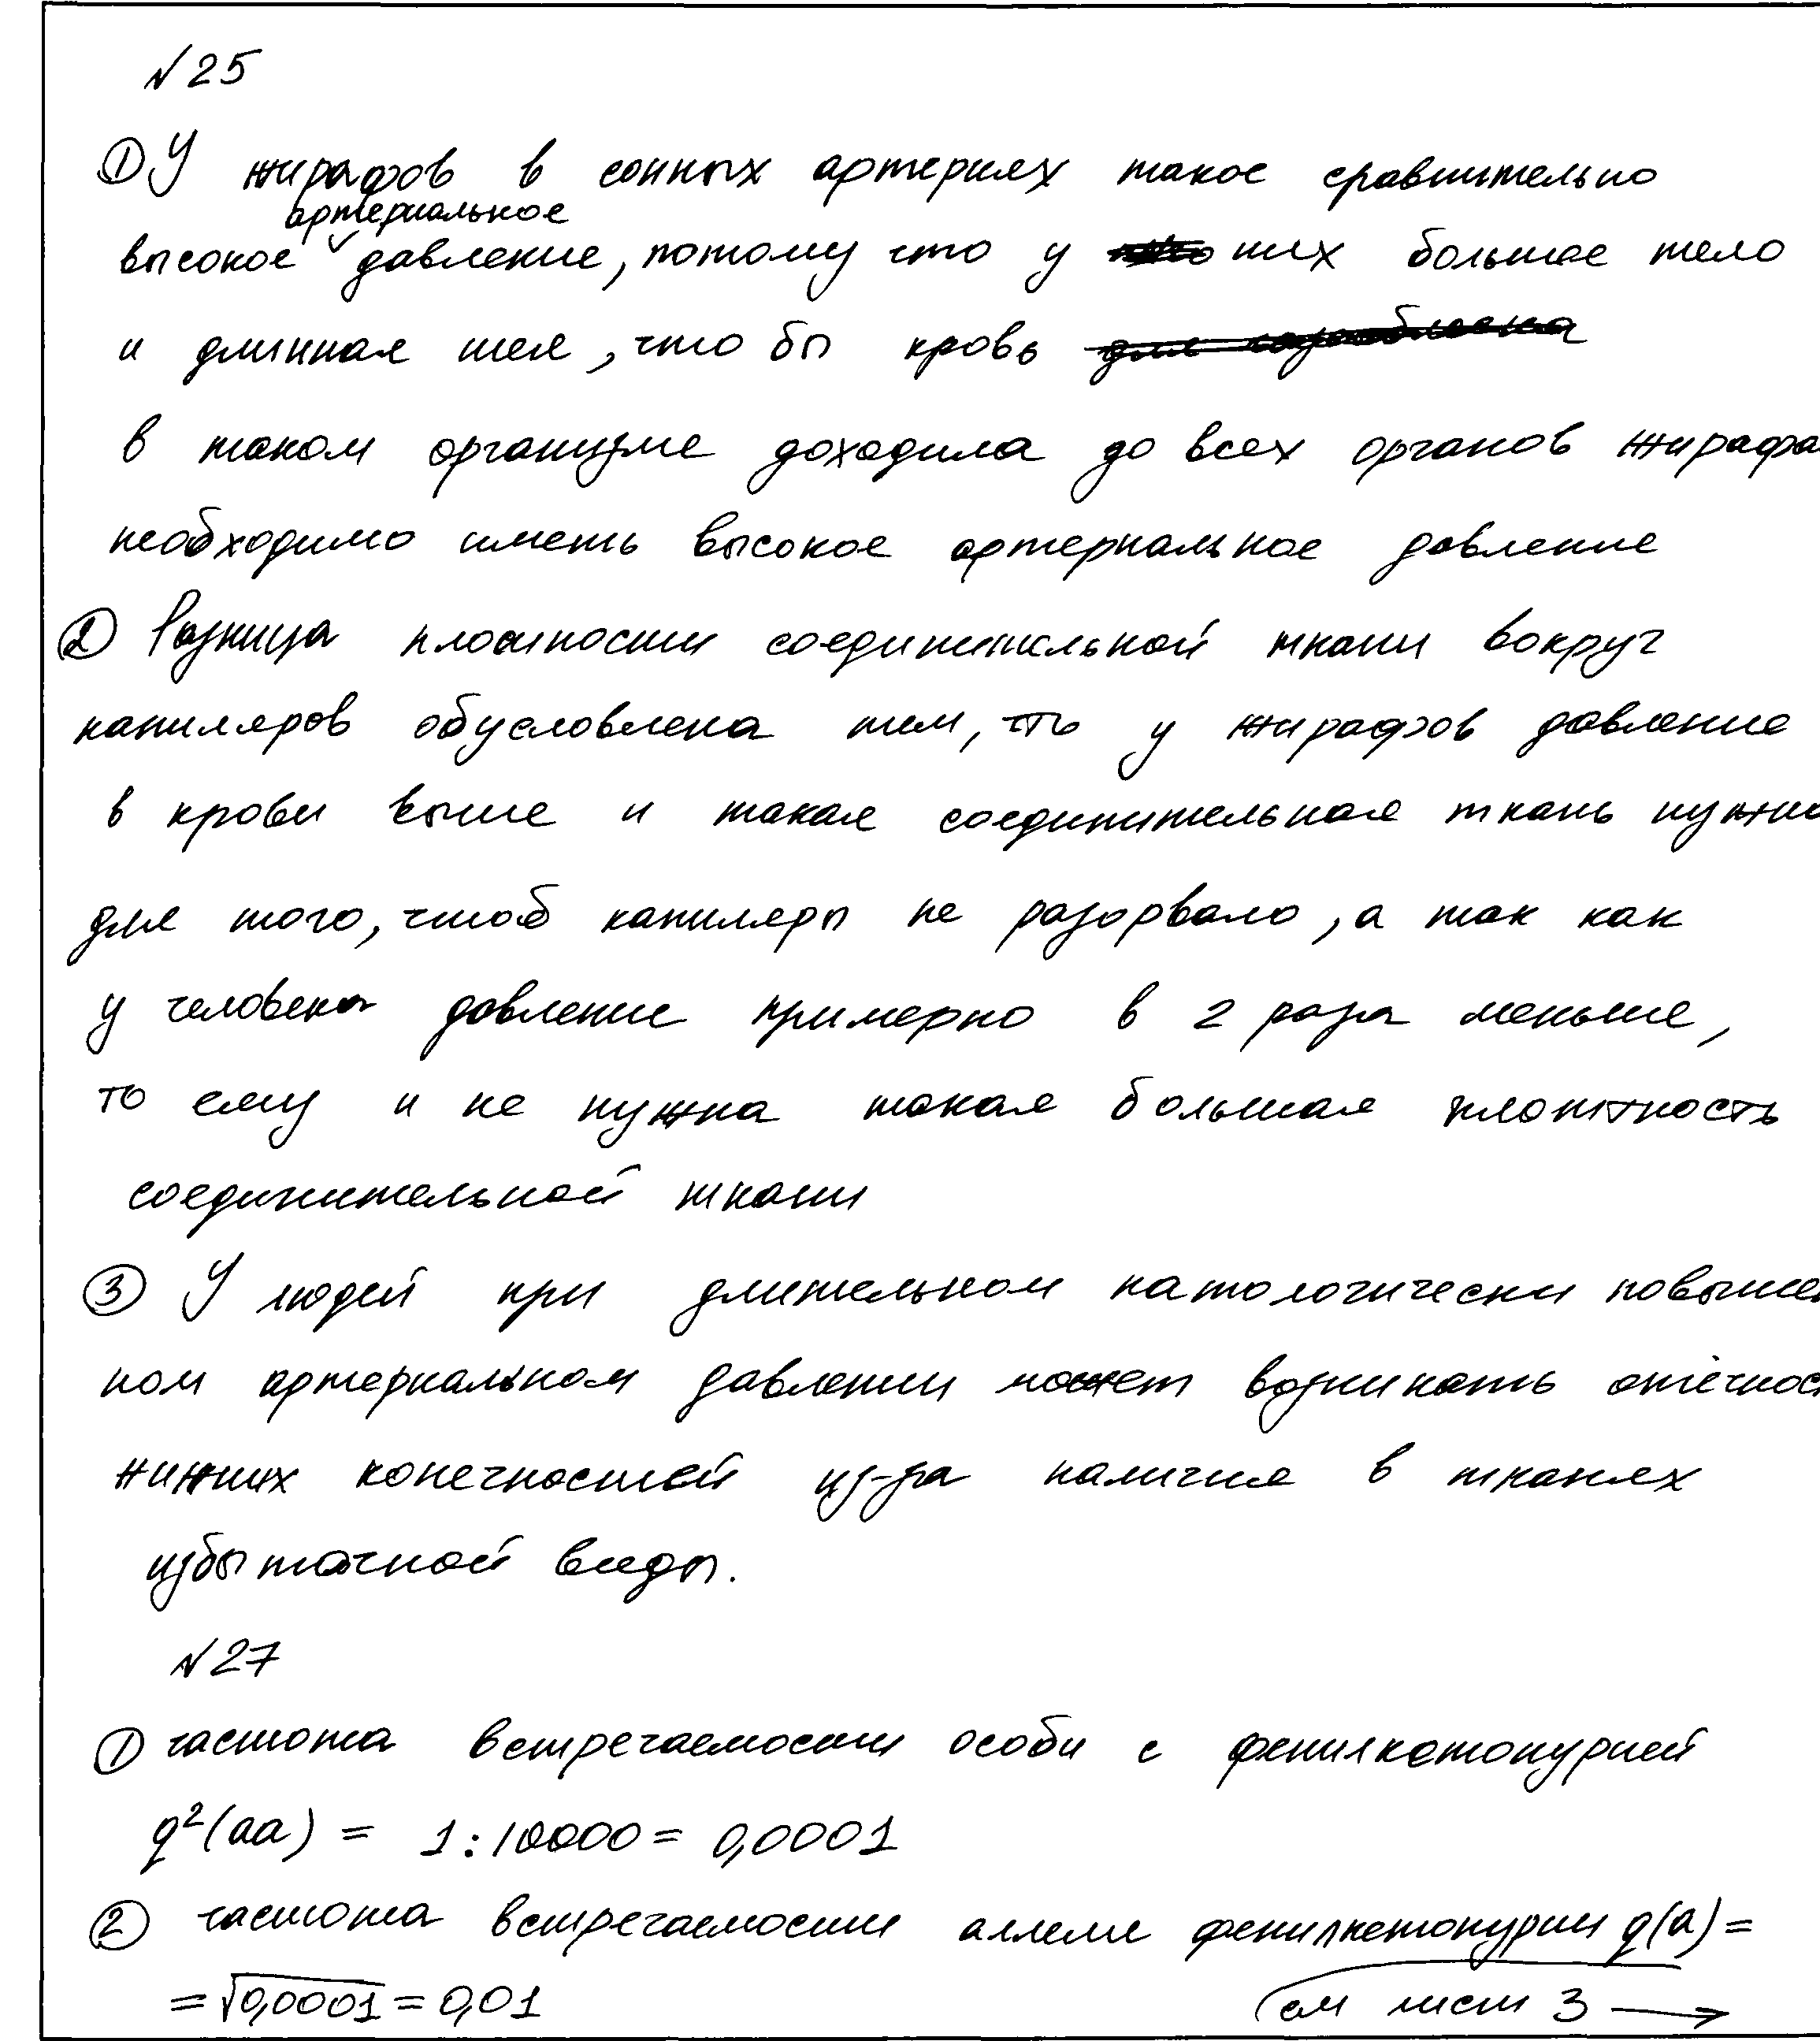 №25
① У жирафов в сонных артериях такое сравнительно
артериальное
высокое ✓ давление, потому что у них большое тело
и длинная шея, что бы кровь
в таком организме доходила до всех органов жирафа
необходимо иметь высокое артериальное давление
② Разница плотности соединительной ткани вокруг
капиляров обусловлена тем, что у жирафов давление
в крови выше и такая соединительная ткань нужна
для того, чтоб капиляры не разорвало, а так как
у человека давление примерно в 2 раза меньше,
то ему и не нужна такая большая плотность
соединительной ткани
③ У людей при длительном патологически повышен
ном артериальном давлении может возникать отёчнос
нижних конечностей из-за наличия в тканях
избыточной воды.
№27
① частота встречаемости особи с фенилкетонурией
q²(aa) = 1:10000 = 0,0001
② частота встречаемости аллели фенилкетонурии q(a) =
= √0,0001 = 0,01
см лист 3 →